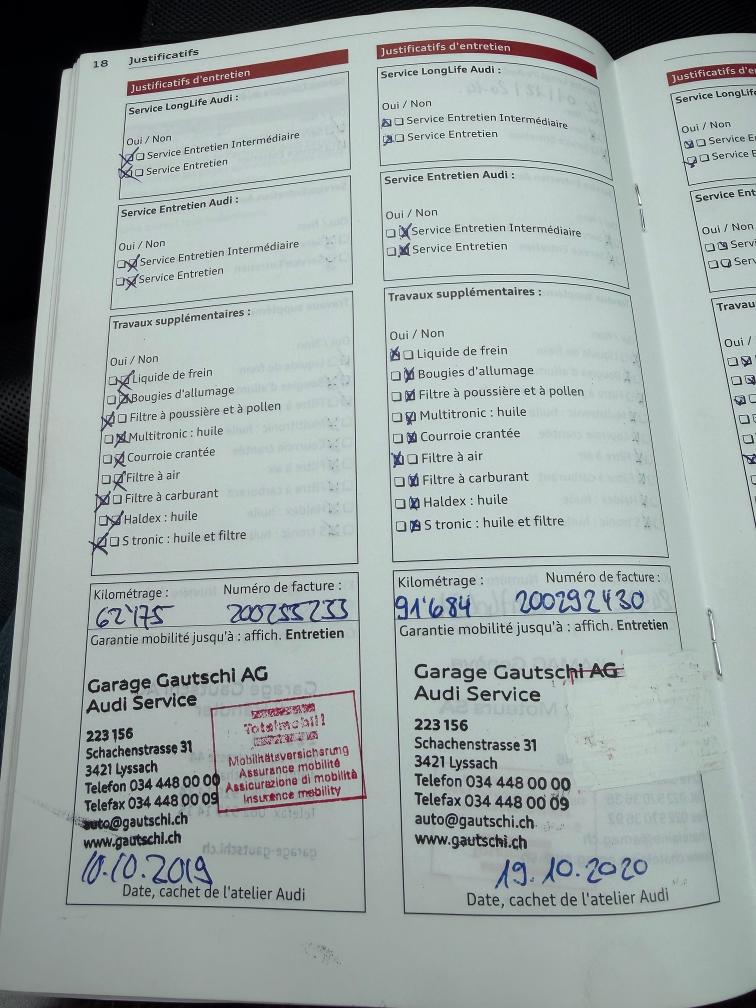 18 Justificatifs
Justificatifs d'entretien
Service LongLife Audi :
Oui / Non
Service Entretien Intermédiaire
Service Entretien
Service Entretien Audi :
Oui / Non
Service Entretien Intermédiaire
Service Entretien
Travaux supplémentaires :
Oui / Non
Liquide de frein
Bougies d'allumage
Filtre à poussière et à pollen
Multitronic : huile
Courroie crantée
Filtre à air
Filtre à carburant
Haldex : huile
S tronic : huile et filtre
Kilométrage : Numéro de facture :
62'475 200255233
Garantie mobilité jusqu'à : affich. Entretien
Garage Gautschi AG
Audi Service
223 156
Schachenstrasse 31
3421 Lyssach
Telefon 034 448 00 00
Telefax 034 448 00 09
auto@gautschi.ch
www.gautschi.ch
Totalmobil!
Mobilitätsversicherung
Assurance mobilité
Assicurazione di mobilità
Insurance mobility
10.10.2019
Date, cachet de l'atelier Audi
Justificatifs d'entretien
Service LongLife Audi :
Oui / Non
Service Entretien Intermédiaire
Service Entretien
Service Entretien Audi :
Oui / Non
Service Entretien Intermédiaire
Service Entretien
Travaux supplémentaires :
Oui / Non
Liquide de frein
Bougies d'allumage
Filtre à poussière et à pollen
Multitronic : huile
Courroie crantée
Filtre à air
Filtre à carburant
Haldex : huile
S tronic : huile et filtre
Kilométrage : Numéro de facture :
91'684 200292430
Garantie mobilité jusqu'à : affich. Entretien
Garage Gautschi AG
Audi Service
223 156
Schachenstrasse 31
3421 Lyssach
Telefon 034 448 00 00
Telefax 034 448 00 09
auto@gautschi.ch
www.gautschi.ch
19.10.2020
Date, cachet de l'atelier Audi
Justificatifs d'e
Service LongLife
Oui / Non
Service E
Service E
Service Ent
Oui / Non
Servi
Serv
Travau
Oui /